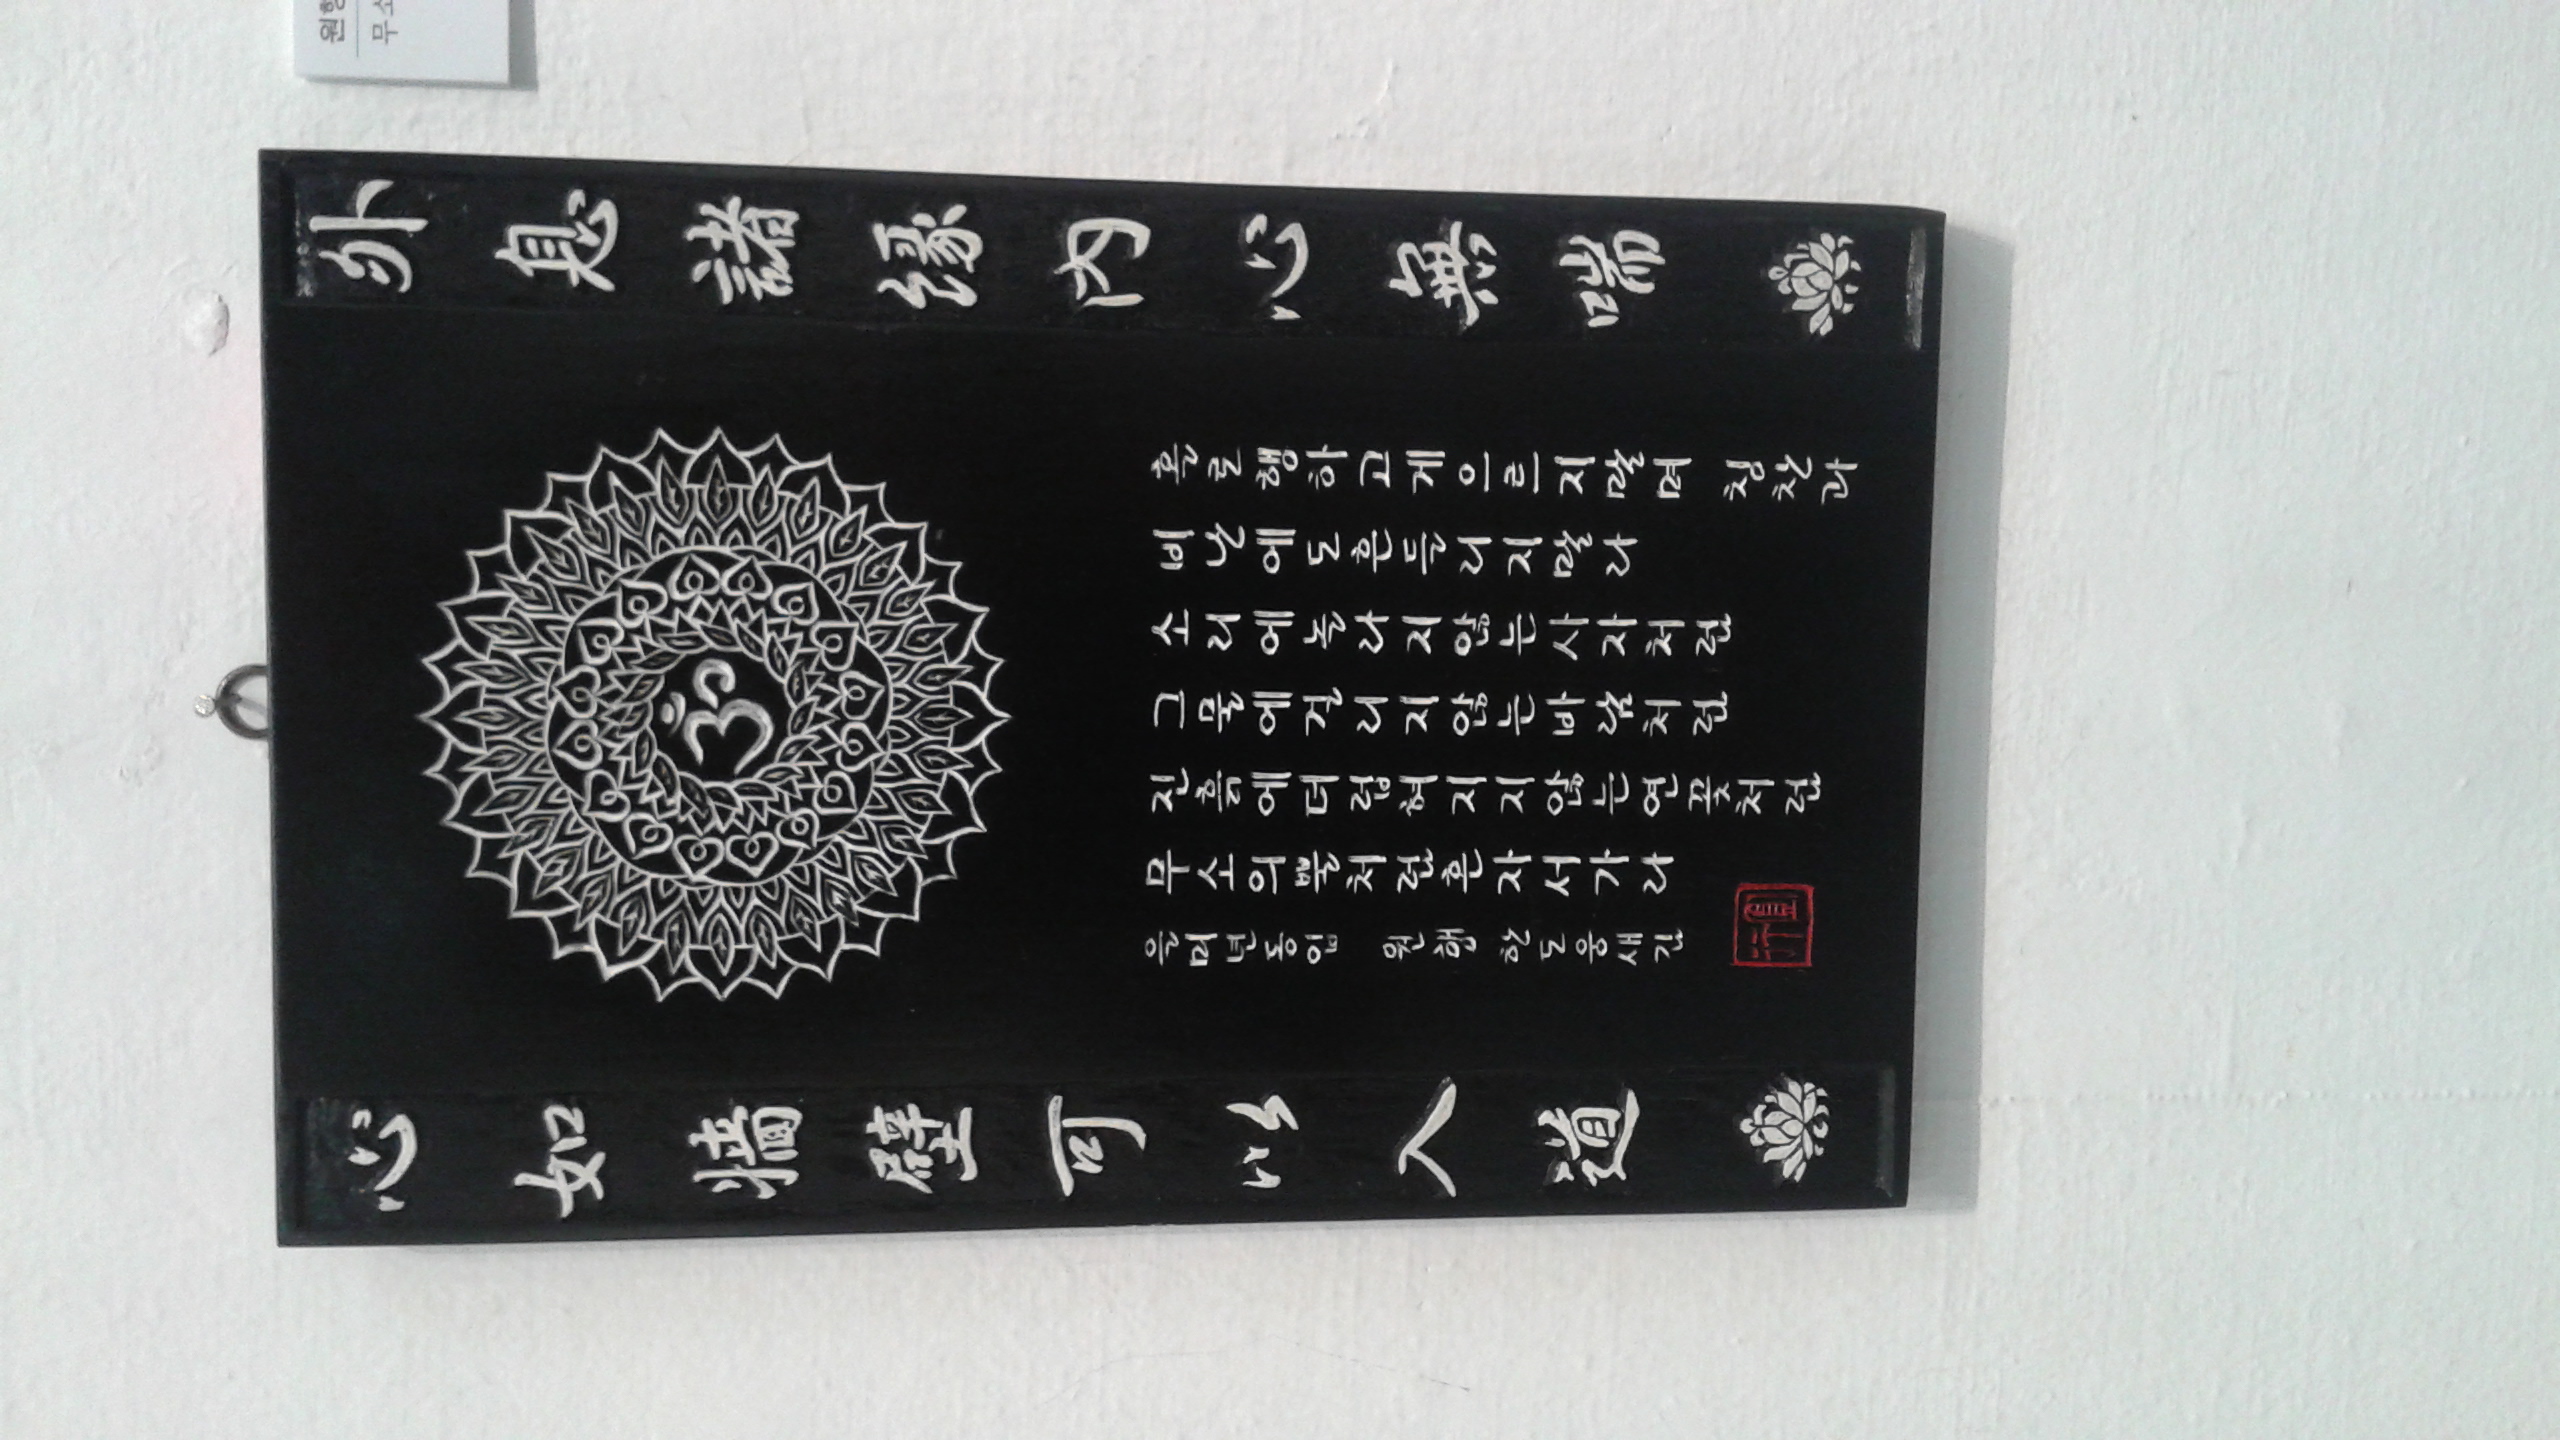 外息諸緣內心無喘
홀로행하고게으르지말며 칭찬과
비난에도흔들리지말라
소리에놀라지않는사자처럼
그물에걸리지않는바람처럼
진흙에더럽혀지지않는연꽃처럼
무소의뿔처럼혼자서가라
을미년동입 원행 한도웅새김
圓行
心如牆壁可以入道
ॐ
원행
무소